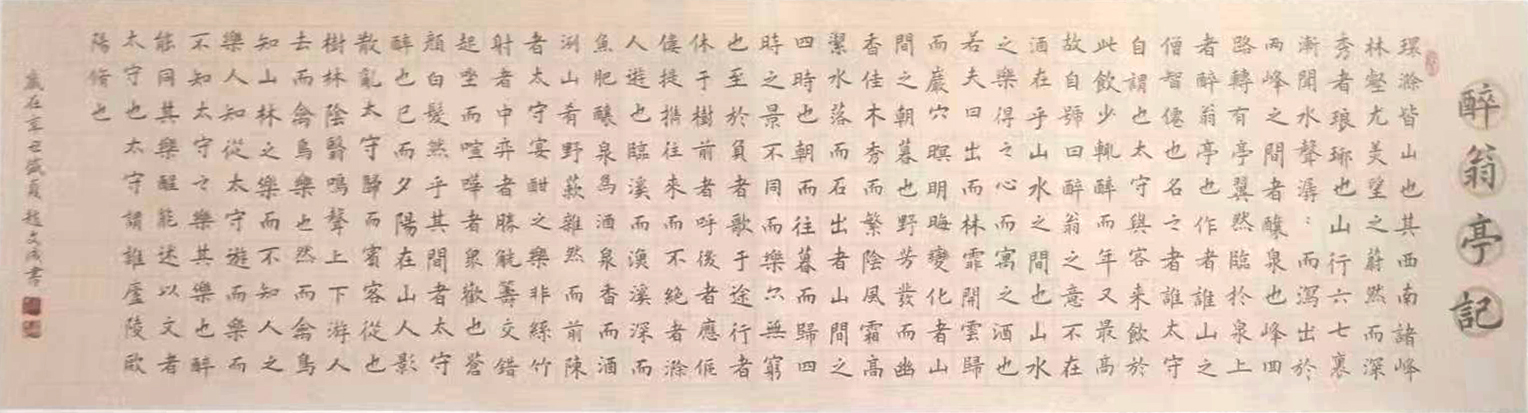 醉翁亭記
環滁皆山也其西南諸峰
林壑尤美望之蔚然而深
秀者琅琊也山行六七裏
漸聞水聲潺：而瀉出於
两峰之間者釀泉也峰回
路轉有亭翼然臨於泉上
者醉翁亭也作者誰山之
僧智僊也名之者誰太守
自謂也太守與客來飲於
此飲少輒醉而年又最高
故自號曰醉翁之意不在
酒在乎山水之間也山水
之樂得之心而寓之酒也
若夫日出而林霏開雲歸
而巖穴暝明晦變化者山
間之朝暮也野芳發而幽
香佳木秀而繁陰風霜高
潔水落而石出者山間之
四時也朝而往暮而歸四
時之景不同而樂亦無窮
也至於負者歌于途行者
休于樹前者呼後者應傴
僂提攜往來而不絕者滁
人遊也臨溪而漁溪深而
魚肥釀泉為酒泉香而酒
洌山肴野蔌雜然而前陳
者太守宴酣之樂非絲竹
射者中弈者勝觥籌交錯
起坐而喧嘩者眾歡也蒼
顏白髮然乎其間者太守
醉也已而夕陽在山人影
散亂太守歸而賓客從也
樹林陰翳鳴聲上下游人
去而禽鳥樂也然而禽鳥
知山林之樂而不知人之
樂人知從太守遊而樂而
不知太守之樂其樂也醉
能同其樂醒能述以文者
太守也太守謂誰廬陵歐
陽脩也
歲在辛丑盛夏趙文書